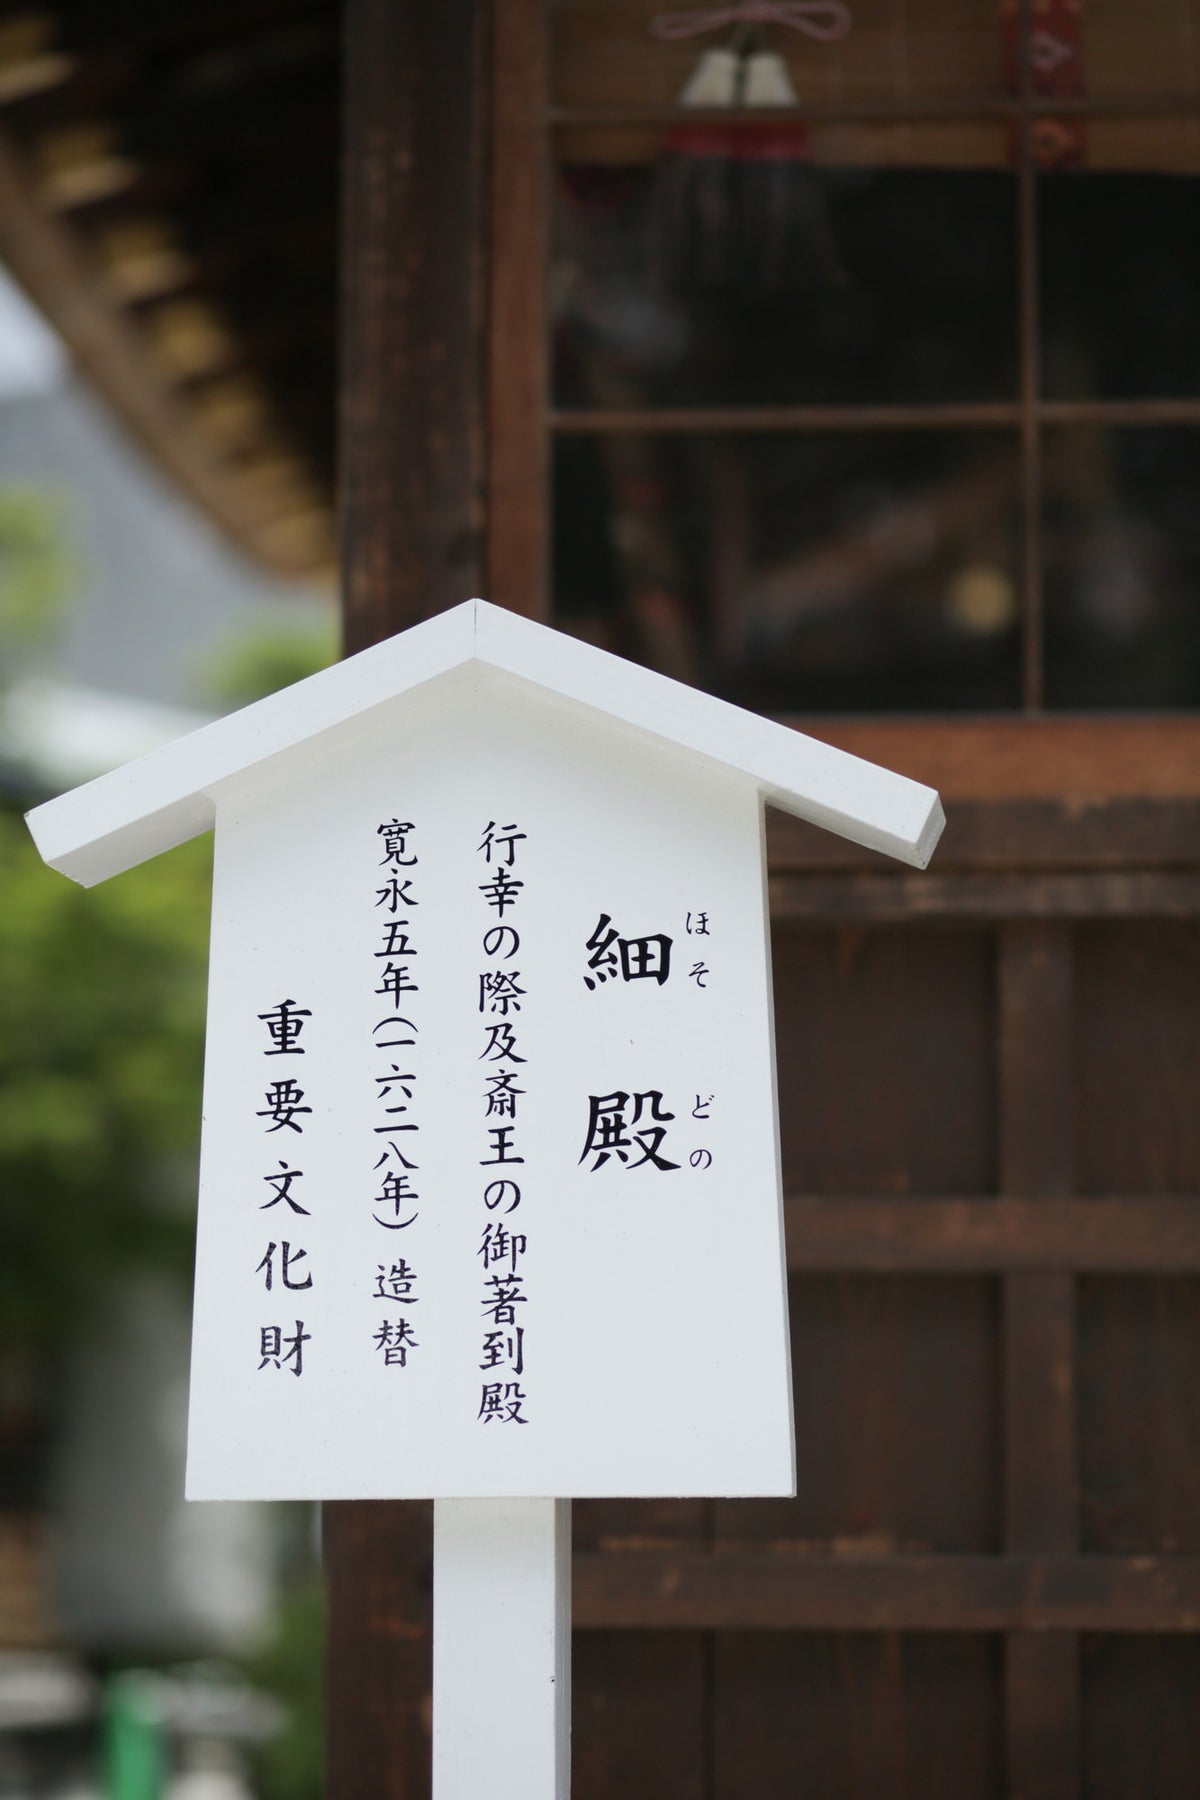 細殿
ほそどの
行幸の際及斎王の御著到殿
寛永五年(一六二八年) 造替
重要文化財